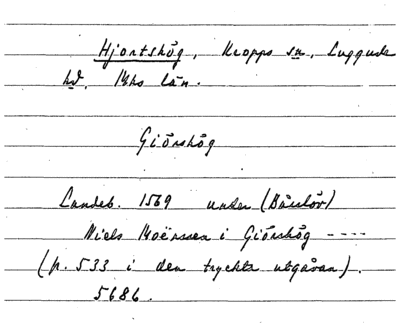 Hjortshög, Kropps sn, Luggude
hd, Mhs län.
Giörshög
Landeb. 1569 under (Bårslöv)
Niels Boërssen i Giörshög ----
(p. 533 i den tryckta utgåvan).
5686.